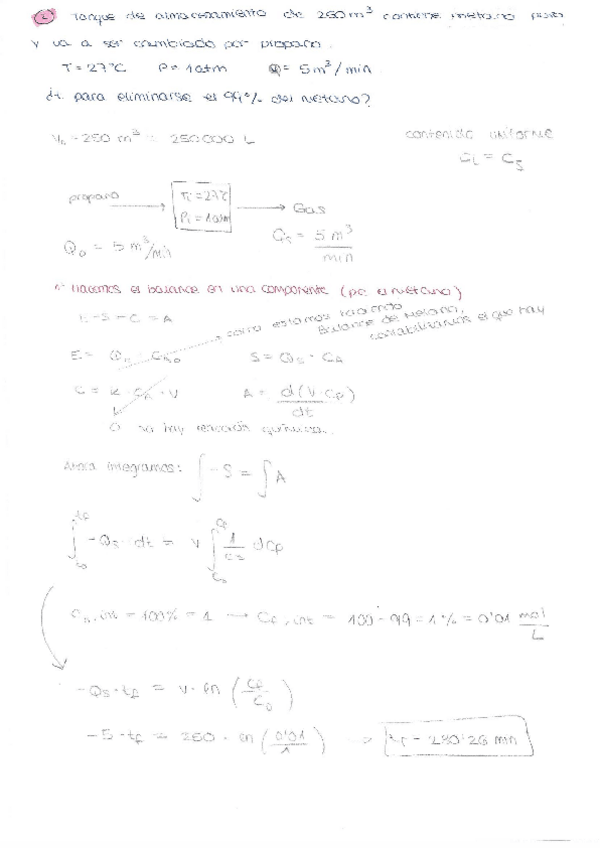 2. Tanque de almacenamiento de 250 m³ contiene metano puro
y va a ser cambiado por propano.
T = 27°C P = 1 atm Q = 5 m³/min
¿t para eliminarse el 99% del metano?
V₀ = 250 m³ = 250000 L
contenido uniforme
C_f = C_s
propano → Ti = 27°C Pi = 1 atm → Gas
Q₀ = 5 m³/min Q_s = 5 m³/min
Hacemos el balance en una componente (p.e. el metano)
E - S - C = A
como estamos haciendo
Balance de Metano,
contabilizamos el que hay
E = Q₀ · C S = Q_s · C_f
C = k · C_f · V A = d(V · C_f)/dt
0 no hay reacción química.
Ahora integramos: ∫ -S = ∫ A
∫ -Q_s · dt = V ∫ 1/C dC_f
int = 100% = 1 → C_f, int = 100 - 99 = 1% = 0'01 mol/L
-Q_s · t_f = V · ln (C_f/C₀)
-5 · t_f = 250 · ln (0'01/1) → t_f = 230'26 min